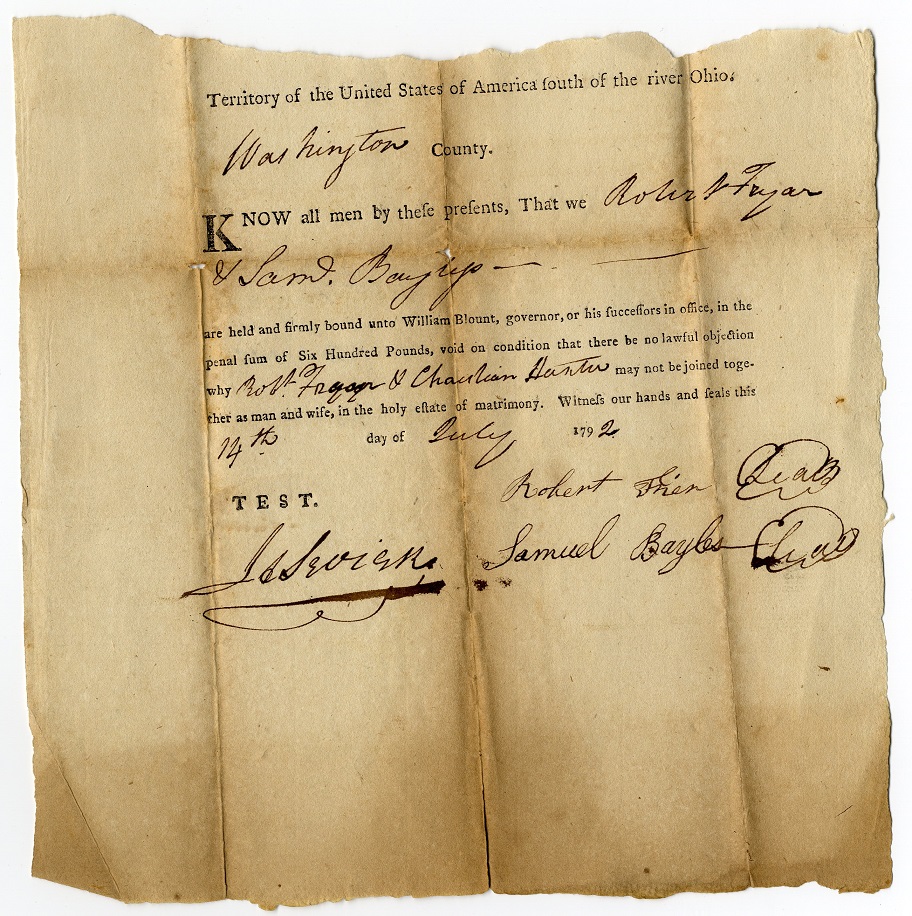 Territory of the United States of America ſouth of the river Ohio.
Washington County.
KNOW all men by theſe preſents, That we Robert Fryar
& Samˡ. Bayles —
are held and firmly bound unto William Blount, governor, or his ſucceſſors in office, in the
penal ſum of Six Hundred Pounds, void on condition that there be no lawful objection
why Robᵗ. Fryar & Christian Hunter may not be joined toge-
ther as man and wife, in the holy eſtate of matrimony. Witneſs our hands and ſeals this
14th day of July 1792
Robert Seal
TEST.
Samuel Bayles Seal
Jas Sevier